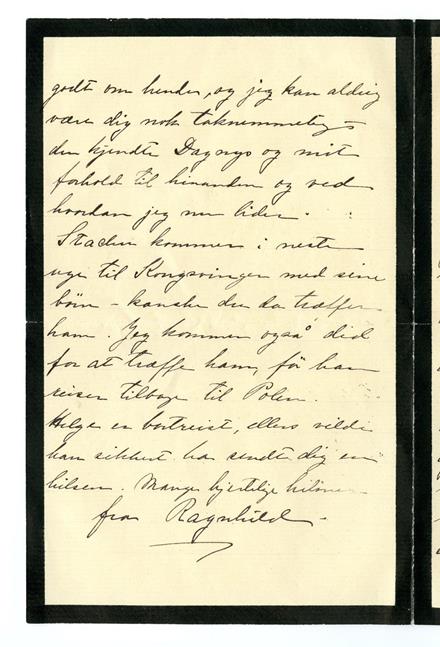 godt om hende, og jeg kan aldrig
være dig nok taknemmelig –
du kjendte Dagnys og mit
forhold til hinanden og ved
hvordan jeg nu lider.
Stachu kommer i neste
uge til Kongsvinger med sine
børn – kanske du da træffer
ham. Jeg kommer også did
for at træffe ham, før han
reiser tilbage til Polen.
Helge er bortreist, ellers vilde
han sikkert ha sendt dig en
hilsen. Mange hjertelige hilsner
fra Ragnhild –